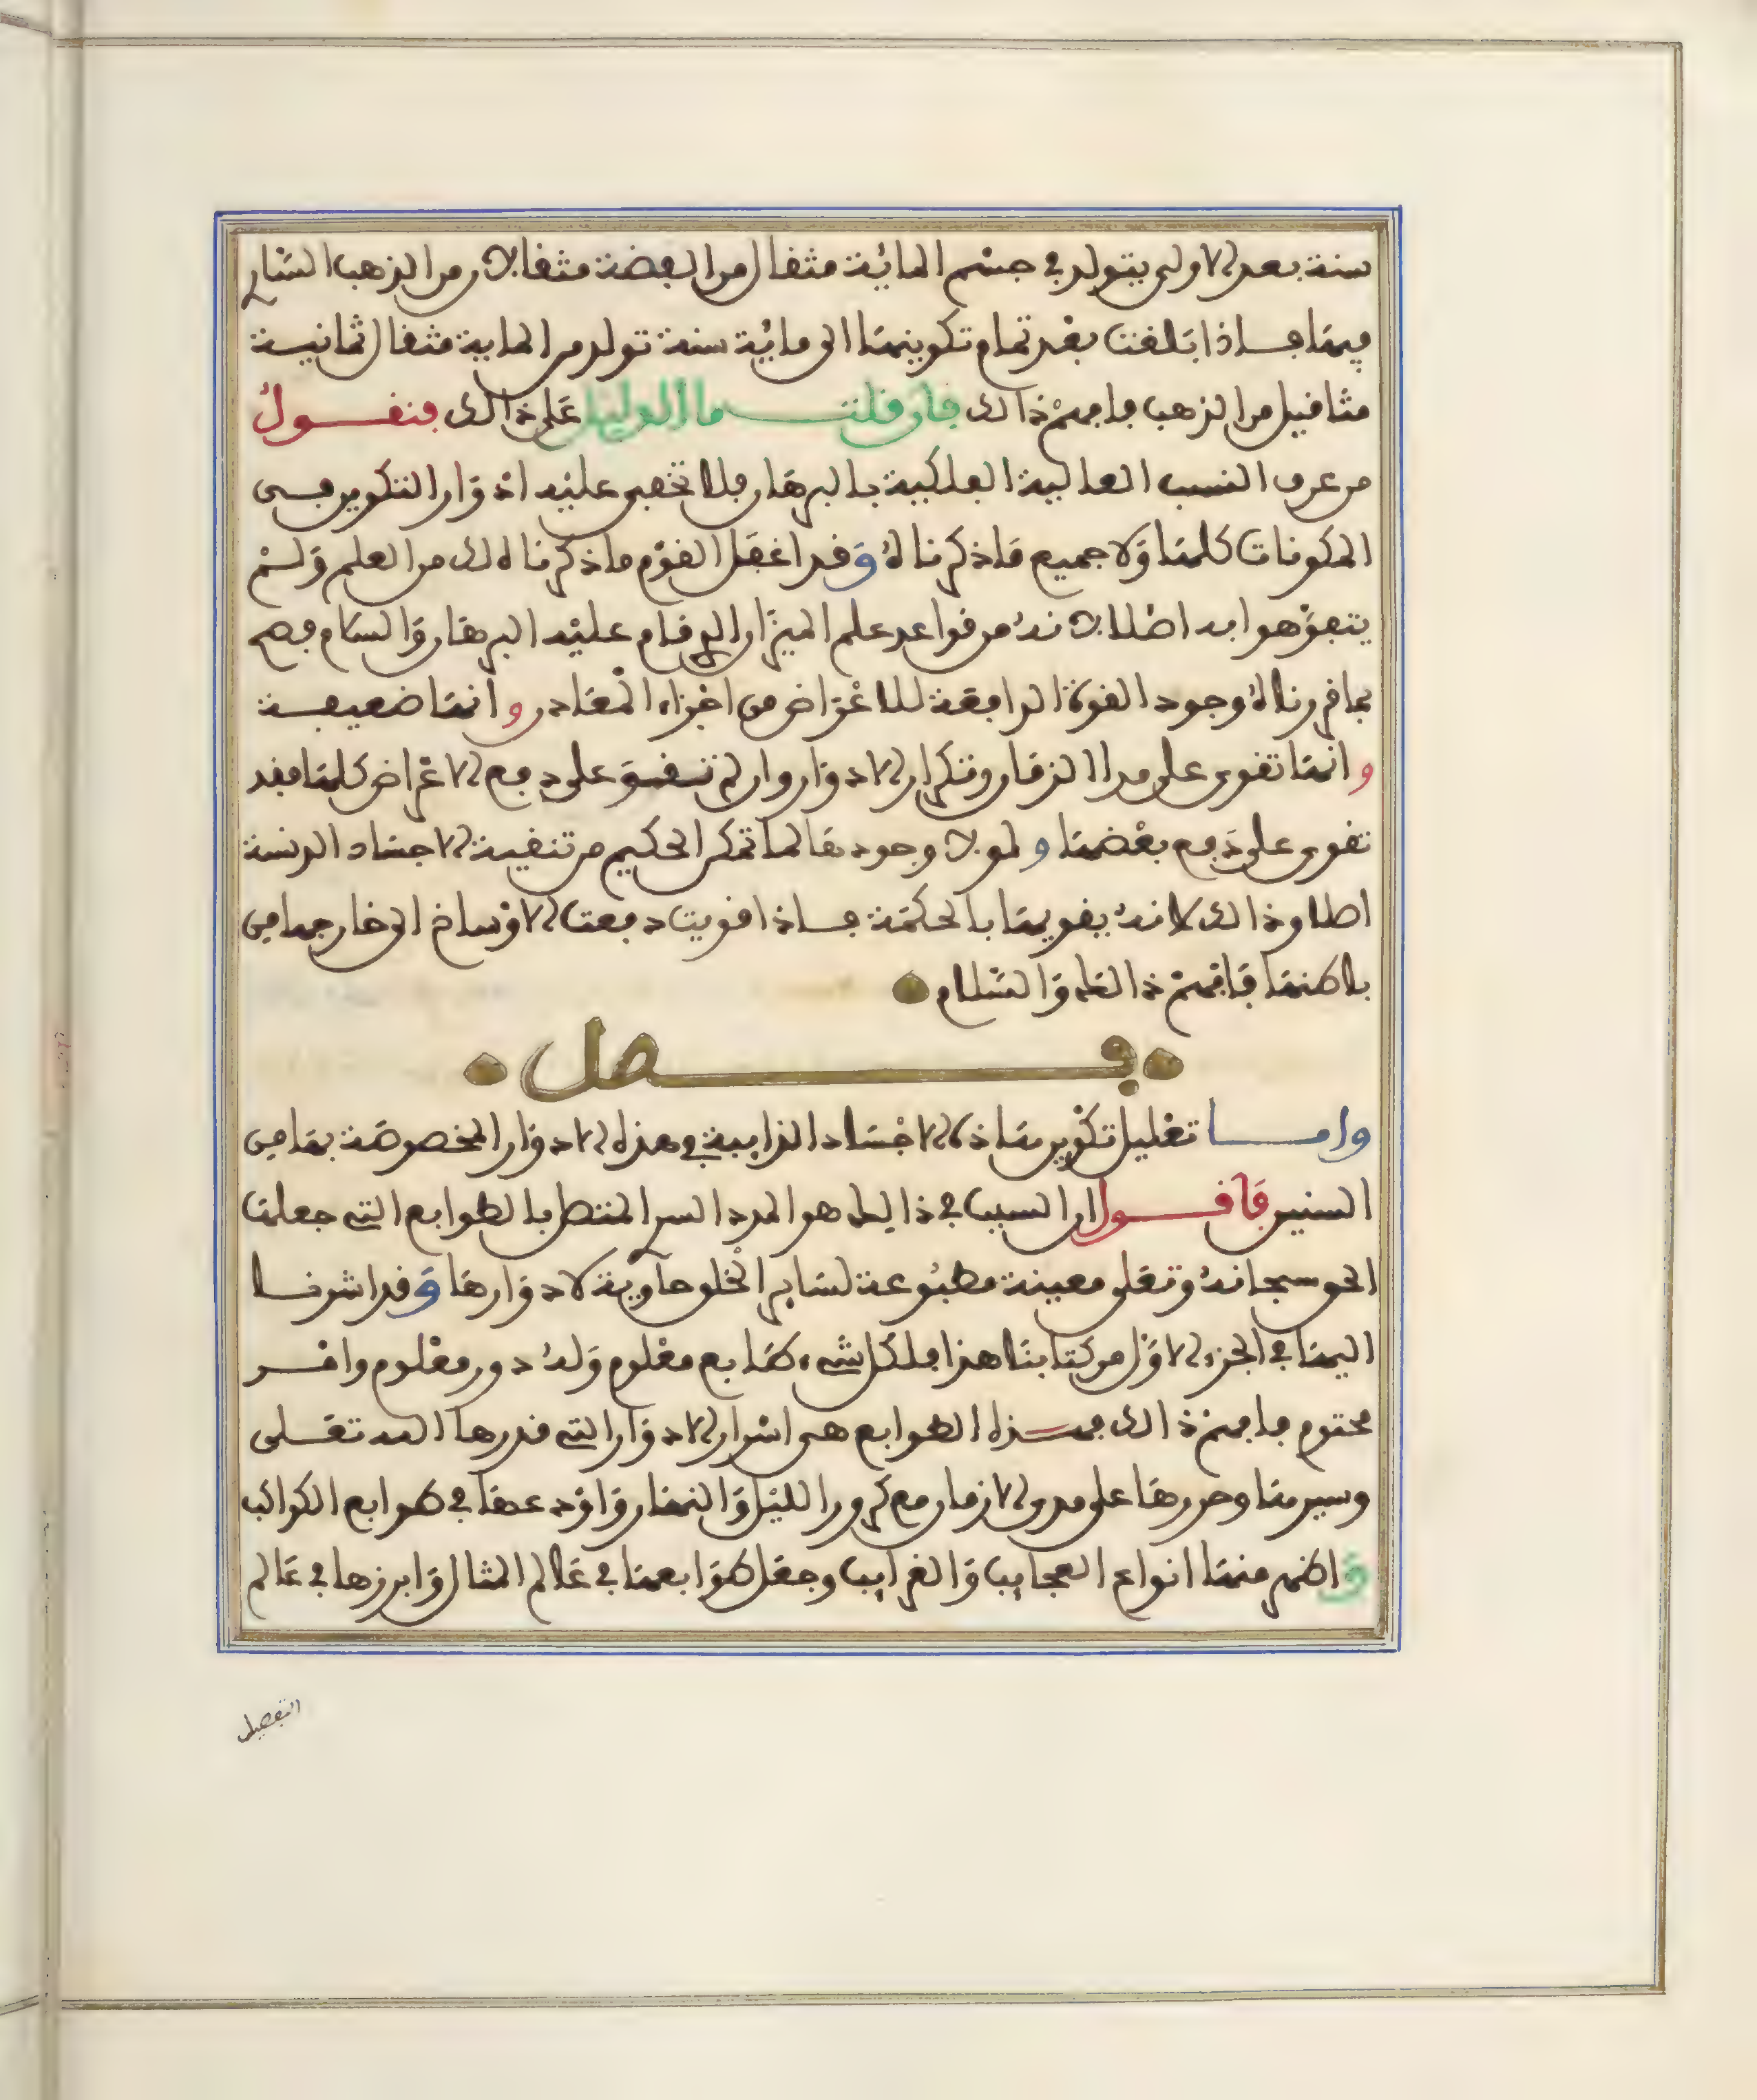 سنة بعد الاولى يتولد في جسم الماية مثقال من الفضة مثقالان من الذهب الساري
فيها فاذا بلغت بعد تمام تكوينها الى ماية سنة تولد من الماية مثقال ثمانية
مثاقيل من الذهب فافهم ذالك فان قلت ما الدليل على ذالك فنقول
من عرف النسب العالية الفلكية بالبرهان فلا تخفى عليه ادوار التكوين في
المكونات كلها ولا جميع ما ذكرناه وقد اغفل القوم ما ذكرناه لك من العلم ولم
يتفوهوا به اصلا لانه من قواعد علم الميزان الذي قام عليه البرهان والسلام فصح
بما قررناه وجود القوة الدافعة للاعراض من اجزاء المعادن وانها ضعيفة
وانها تقوى على مدا الزمان وتكرار الادوار وان لم تقو على دفع الاعراض كلها فقد
تقوى على دفع بعضها ولولا وجودها لما تمكن الحكيم من تنقية الاجساد الدنسة
اصلا وذالك لانه يقويها بالحكمة فاذا قويت دفعت الاوساخ الى خارجها من
باطنها فافهم ذالك والسلام
فصل
واما تعليل تكوين هاذه الاجساد الذايبة في هذه الادوار المخصوصة بها من
السنين فاقول ان السبب في ذالك هو المدد السري المتصل بالطوابع التي جعلها
الحق سبحانه وتعلى معينة مطبوعة لساير الخلق حاوية لادوارها وقد اشرنا
اليها في الجزء الاول من كتابنا هذا فلكل شيء طابع معلوم وله دور معلوم وامر
محتوم فافهم ذالك فهذه الطوابع هي اسرار الادوار التي قدرها الله تعلى
وسيرها وحررها على مدى الازمان مع كرور الليل والنهار واودعها في طوابع الكواكب
واظهر منها انواع العجايب والغرايب وجعل طوابعها في عالم المثال وابرزها في عالم
التفصيل